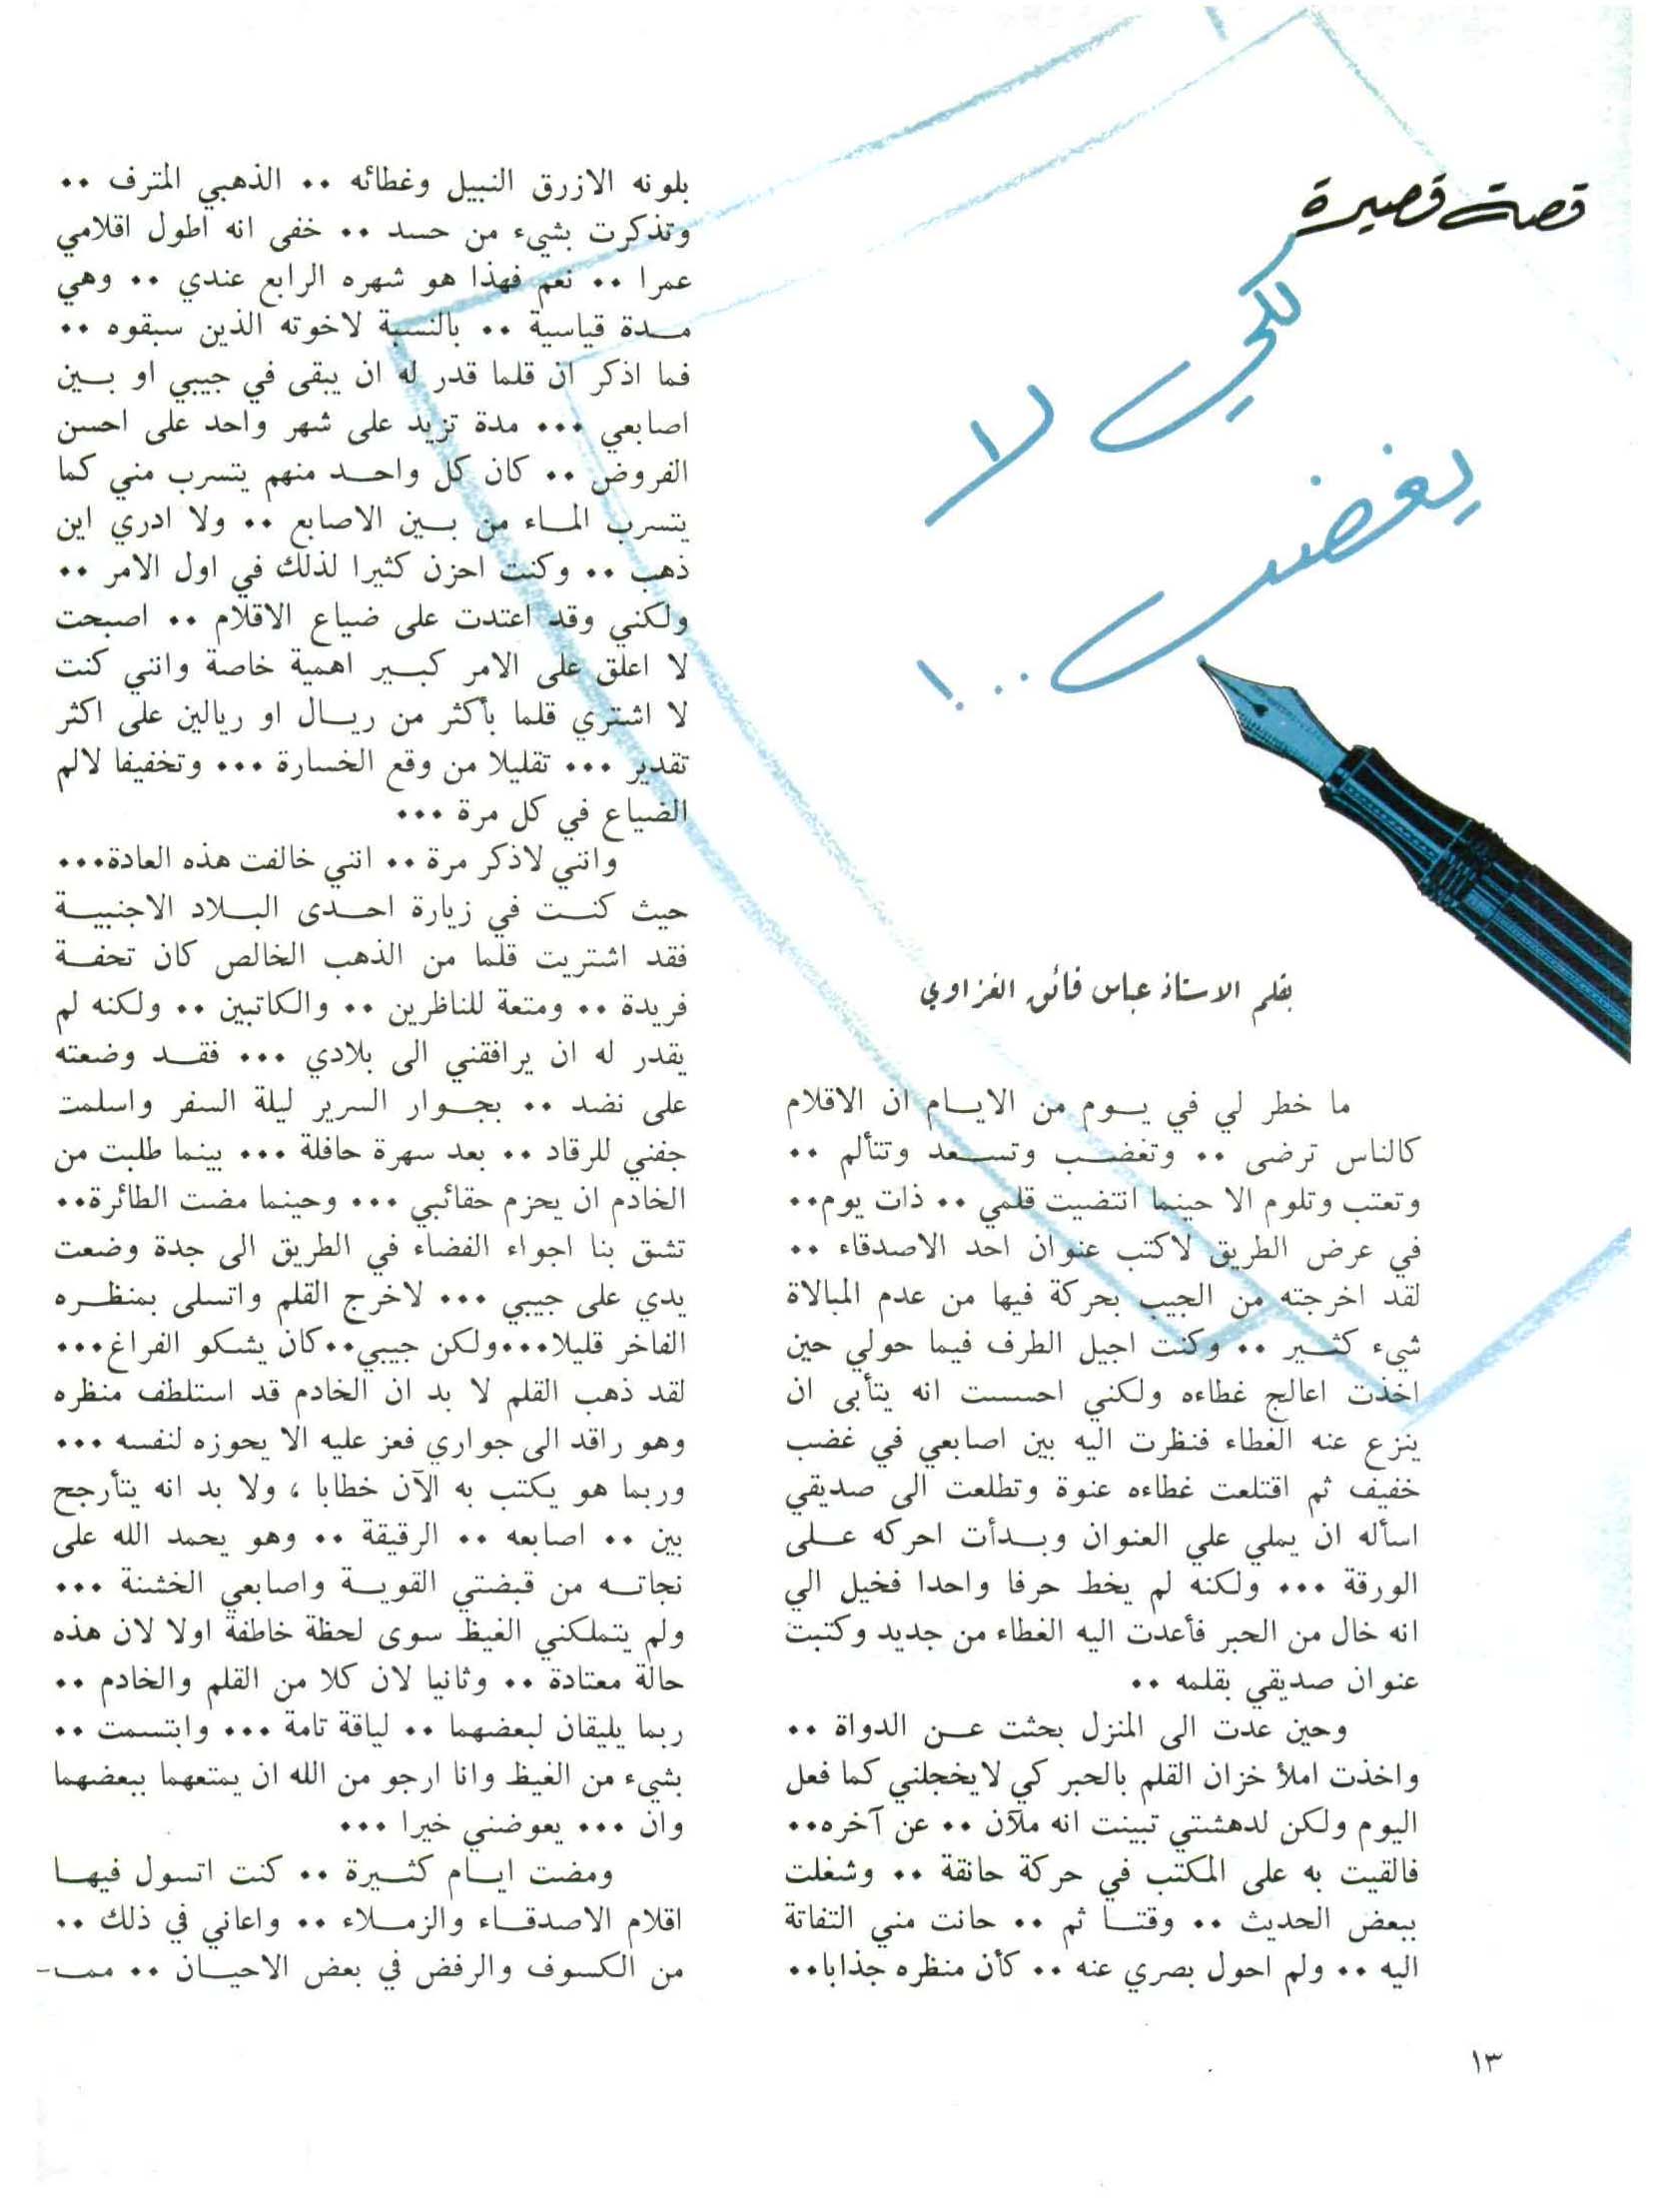 قصة قصيرة
لكي لا
يغضب ..!
بقلم الاستاذ عباس فائق الغزاوي
ما خطر لي في يـــوم من الايـــام ان الاقلام
كالناس ترضى ٠٠ وتغضـــب وتســـعد وتتألم ٠٠
وتعتب وتلوم الا حينما انتضيت قلمي ٠٠ ذات يوم٠٠
في عرض الطريق لاكتب عنوان احد الاصدقاء ٠٠
لقد اخرجته من الجيب بحركة فيها من عدم المبالاة
شيء كثـــير ٠٠ وكنت اجيل الطرف فيما حولي حين
اخذت اعالج غطاءه ولكني احسست انه يتأبى ان
ينزع عنه الغطاء فنظرت اليه بين اصابعي في غضب
خفيف ثم اقتلعت غطاءه عنوة وتطلعت الى صديقي
اسأله ان يملي علي العنوان وبـــدأت احركه عـــلى
الورقة ٠٠٠ ولكنه لم يخط حرفا واحدا فخيل الي
انه خال من الحبر فأعدت اليه الغطاء من جديد وكتبت
عنوان صديقي بقلمه ٠٠
وحين عدت الى المنزل بحثت عـــن الدواة ٠٠
واخذت املأ خزان القلم بالحبر كي لايخجلني كما فعل
اليوم ولكن لدهشتي تبينت انه ملآن ٠٠ عن آخره٠٠
فالقيت به على المكتب في حركة حانقة ٠٠ وشغلت
ببعض الحديث ٠٠ وقتـــا ثم ٠٠ حانت مني التفاتة
اليه ٠٠ ولم احول بصري عنه ٠٠ كأن منظره جذابا٠٠
بلونه الازرق النبيل وغطائه ٠٠ الذهبي المترف ٠٠
وتذكرت بشيء من حسد ٠٠ خفى انه اطول اقلامي
عمرا ٠٠ نعم فهذا هو شهره الرابع عندي ٠٠ وهي
مـــدة قياسية ٠٠ بالنسبة لاخوته الذين سبقوه ٠٠
فما اذكر ان قلما قدر له ان يبقى في جيبي او بـــين
اصابعي ٠٠٠ مدة تزيد على شهر واحد على احسن
الفروض ٠٠ كان كل واحـــد منهم يتسرب مني كما
يتسرب المـــاء من بـــين الاصابع ٠٠ ولا ادري اين
ذهب ٠٠ وكنت احزن كثيرا لذلك في اول الامر ٠٠
ولكني وقد اعتدت على ضياع الاقلام ٠٠ اصبحت
لا اعلق على الامر كبـــير اهمية خاصة وانني كنت
لا اشتري قلما بأكثر من ريـــال او ريالين على اكثر
تقدير ٠٠٠ تقليلا من وقع الخسارة ٠٠٠ وتخفيفا لالم
الضياع في كل مرة ٠٠٠
وانني لاذكر مرة ٠٠ انني خالفت هذه العادة٠٠٠
حيث كنـــت في زيارة احـــدى البـــلاد الاجنبيـــة
فقد اشتريت قلما من الذهب الخالص كان تحفـــة
فريدة ٠٠ ومتعة للناظرين ٠٠ والكاتبين ٠٠ ولكنه لم
يقدر له ان يرافقني الى بلادي ٠٠٠ فقـــد وضعته
على نضد ٠٠ بجـــوار السرير ليلة السفر واسلمت
جفني للرقاد ٠٠ بعد سهرة حافلة ٠٠٠ بينما طلبت من
الخادم ان يحزم حقائبي ٠٠٠ وحينما مضت الطائرة٠٠
تشق بنا اجواء الفضاء في الطريق الى جدة وضعت
يدي على جيبي ٠٠٠ لاخرج القلم واتسلى بمنظـــره
الفاخر قليلا٠٠٠ولكن جيبي٠٠كان يشكو الفراغ٠٠٠
لقد ذهب القلم لا بد ان الخادم قد استلطف منظره
وهو راقد الى جواري فعز عليه الا يحوزه لنفسه ٠٠٠
وربما هو يكتب به الآن خطابا ، ولا بد انه يتأرجح
بين ٠٠ اصابعه ٠٠ الرقيقة ٠٠ وهو يحمد الله على
نجاتـــه من قبضتي القويـــة واصابعي الخشنة ٠٠٠
ولم يتملكني الغيظ سوى لحظة خاطفة اولا لان هذه
حالة معتادة ٠٠ وثانيا لان كلا من القلم والخادم ٠٠
ربما يليقان لبعضهما ٠٠ لياقة تامة ٠٠٠ وابتسمت ٠٠
بشيء من الغيظ وانا ارجو من الله ان يمتعهما ببعضهما
وان ٠٠٠ يعوضني خيرا ٠٠٠
ومضت ايـــام كثـــيرة ٠٠ كنت اتسول فيهـــا
اقلام الاصدقـــاء والزمـــلاء ٠٠ واعاني في ذلك ٠٠
من الكسوف والرفض في بعض الاحيـــان ٠٠ ممـــ-
١٣